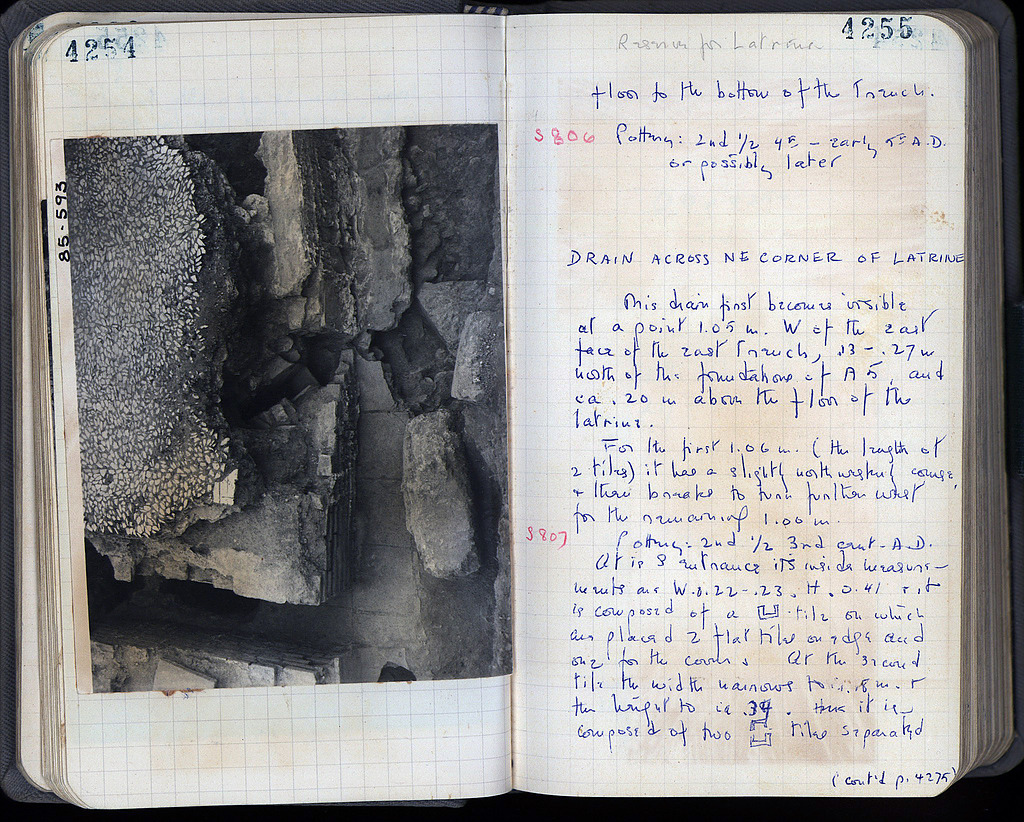 4254
85-593
4255
Reserve for Latrine
floor to the bottom of the Trench.
S806 Pottery: 2nd ½ 4th – early 5th A.D.
or possibly later
DRAIN ACROSS NE CORNER OF LATRINE
This drain first becomes visible
at a point 1.05 m. W of the east
face of the east Trench, .13 – .27 m
north of the foundations of A 5, and
ca .20 m above the floor of the
latrine.
For the first 1.06 m. (the length of
2 tiles) it has a slightly northwesterly course,
+ then breaks to turn further west
for the remaining 1.00 m.
S807 Pottery: 2nd ½ 3rd cent. A.D.
At its S entrance its inside measure-
ments are W. 0.22-.23. H. 0.41 + it
is composed of a tile on which
are placed 2 flat tiles on edge and
one for the cover. At the second
tile the width narrows to m. +
the height to ca .34. it is
composed of two tiles separated
(cont'd p. 4275)